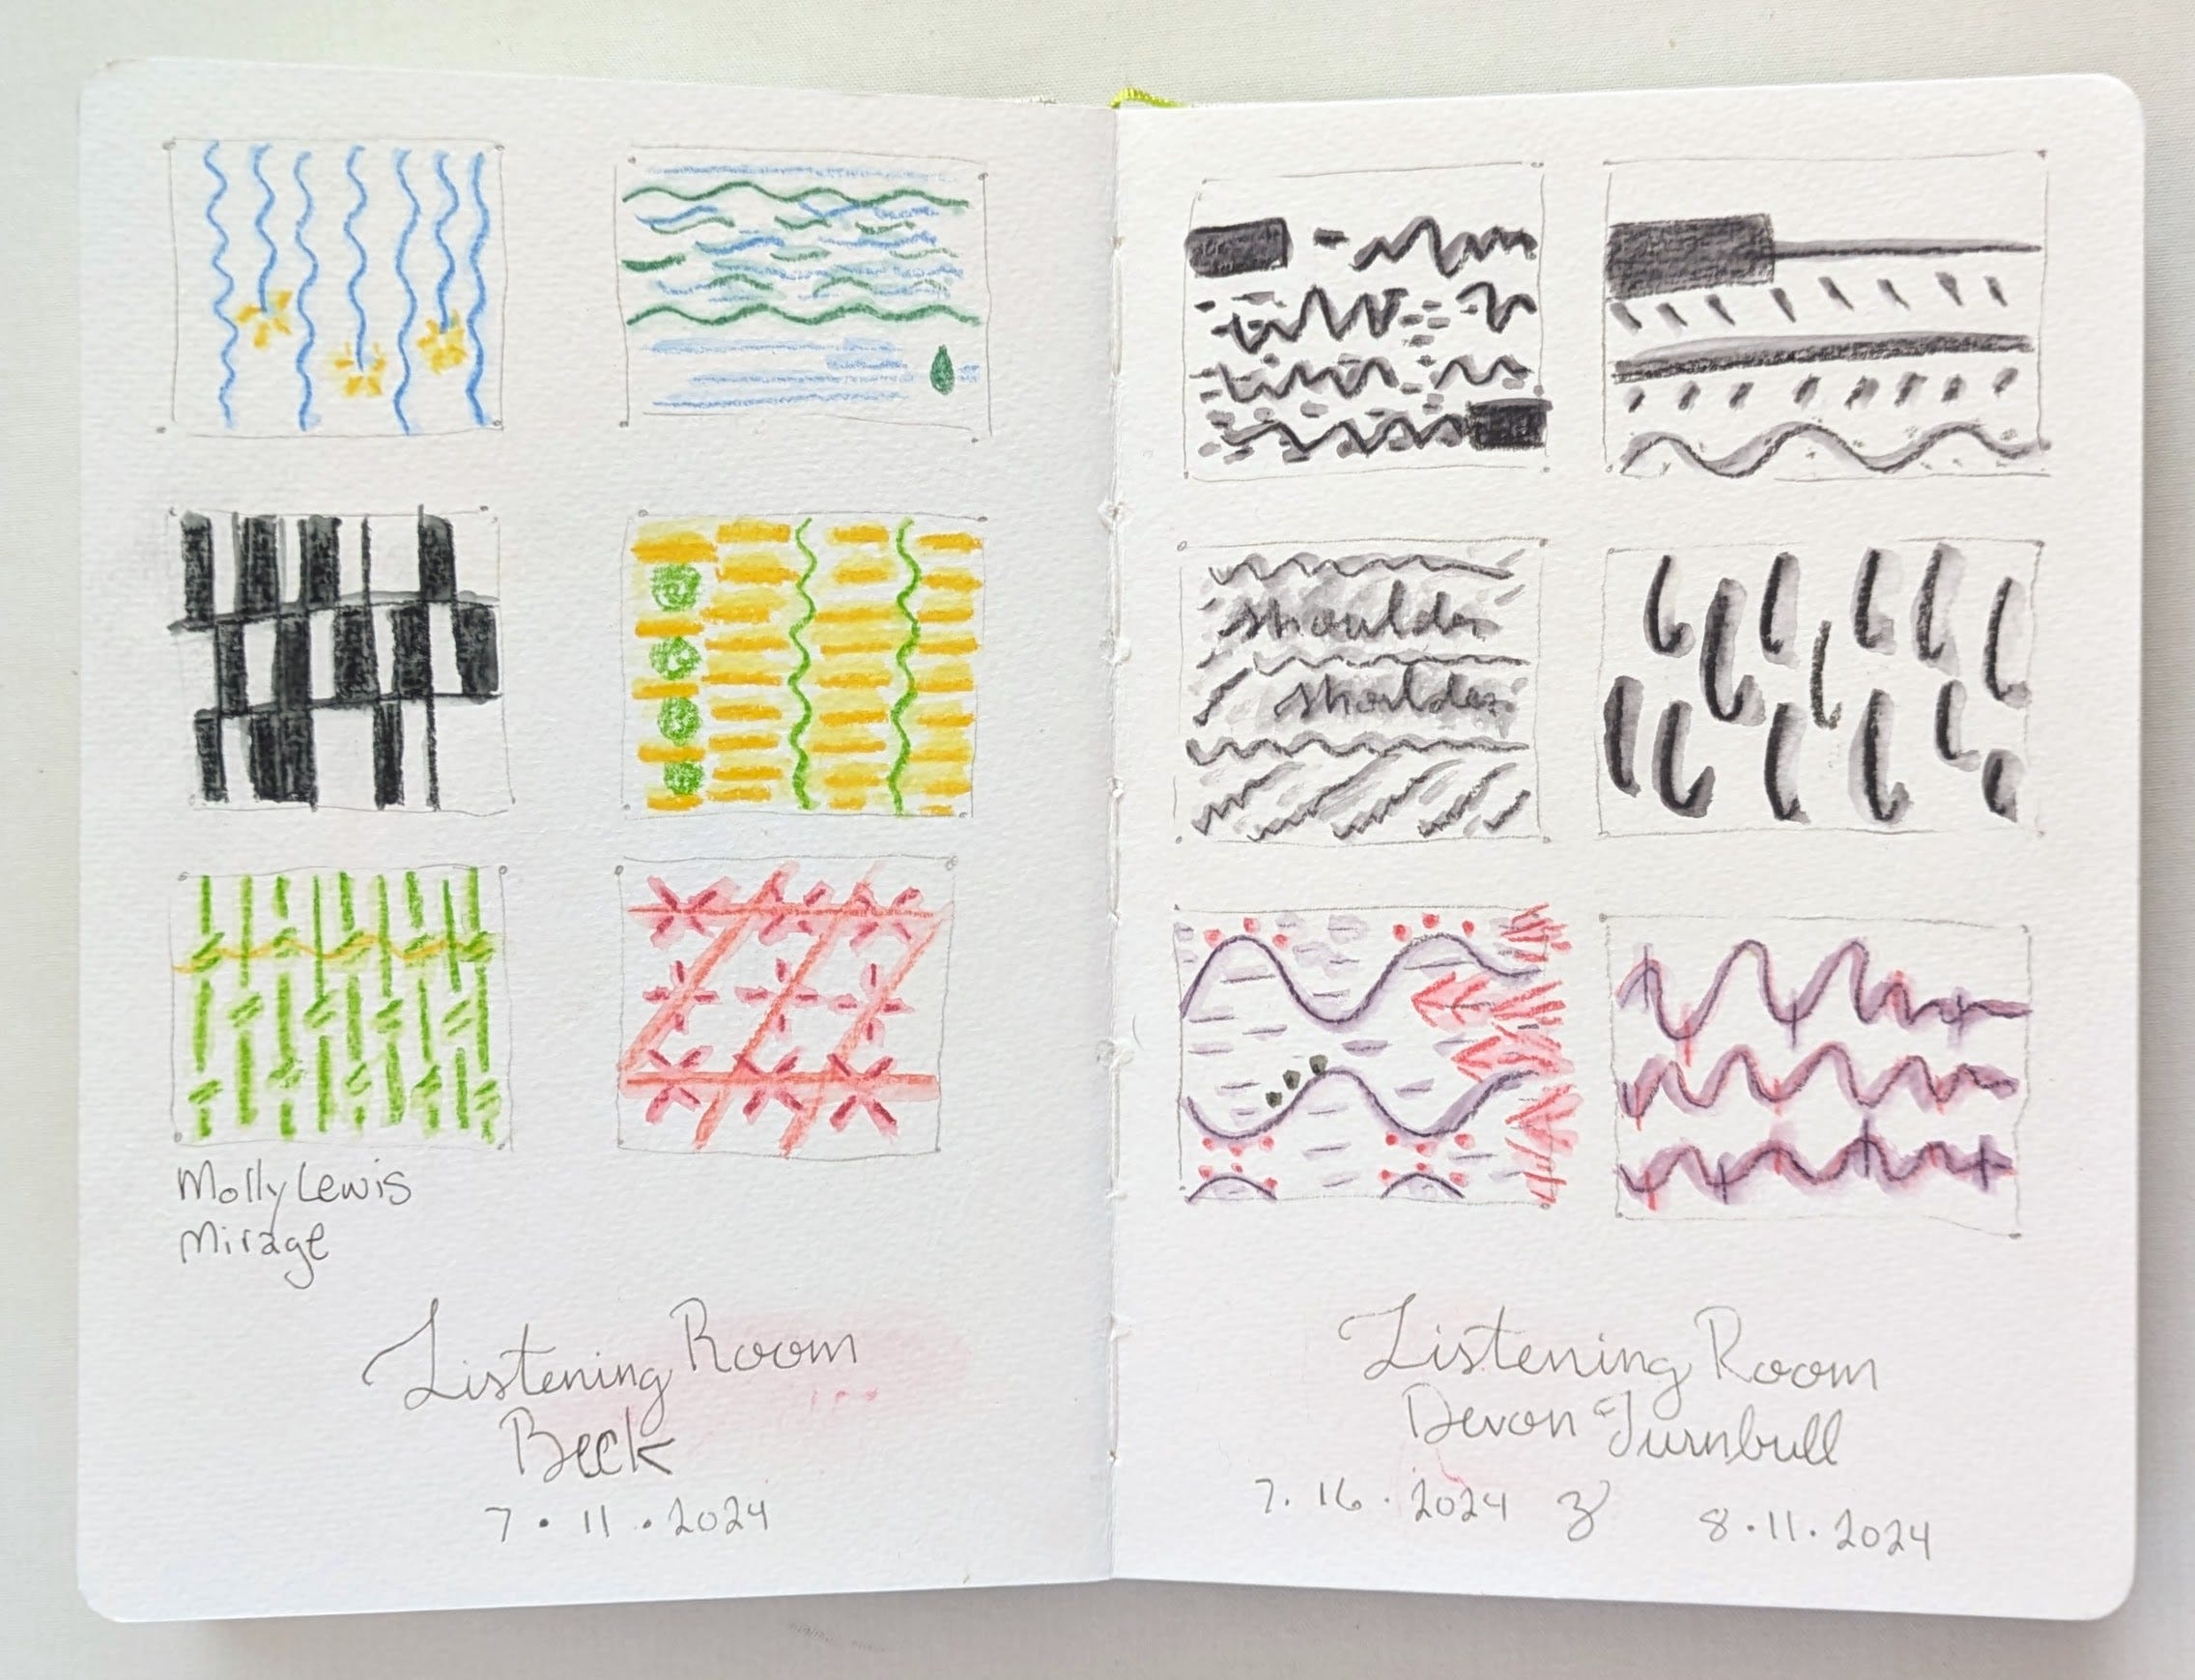 Molly Lewis
Mirage
Listening Room
Beck
7 · 11 · 2024
shoulder
shoulder
Listening Room
Devon Turnbull
7. 16 · 2024 & 8 · 11 · 2024